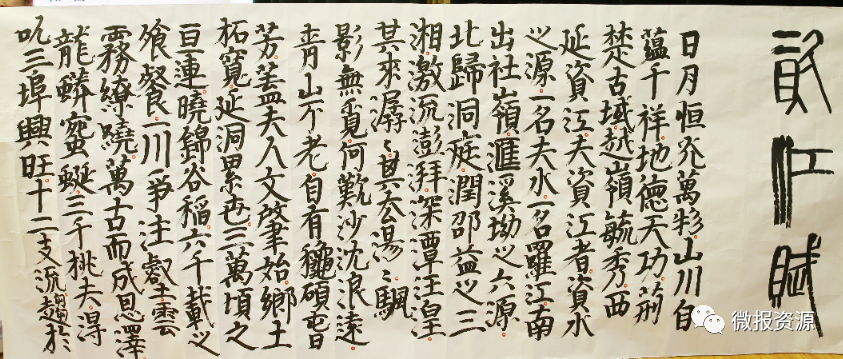 資江賦
日月恒充萬物山川自
蘊千祥地德天功荊
楚古域越嶺毓秀西
延資江夫資江者資水
之源一名夫水一名羅江南
出社嶺滙溪坳之六源
北歸洞庭潤邵益之三
湘激流澎拜深潭汪皇
其來潺〻其去湯〻颿
影無覓何歎沙沈浪遠
青山不老自有龝碩昔日
芳蓋夫人文肇始鄉土
柘寬延洞累屯三萬頃之
亘連曉錦谷稲六千載之
飧餐一川爭注壑雲
霧繚繞萬古而成恩澤
龍鱗蜜蜒三千桃夫得
吼三埠興旺十二支流趨於
微报资源